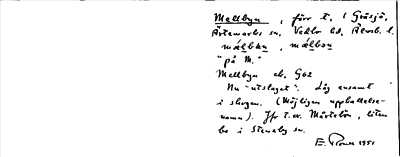 Mellbyn, förr t. i Gräsjö,
Ärtemarks sn. Vedbo hd, Älvsb. l.
"på M."
Mellbyn ek. G62
Nu "utslaget". Låg ensamt
i skogen. (Möjligen uppkallelse-
namn). Jfr t. ex. Mårtsbön, liten
be i Steneby sn.
1951